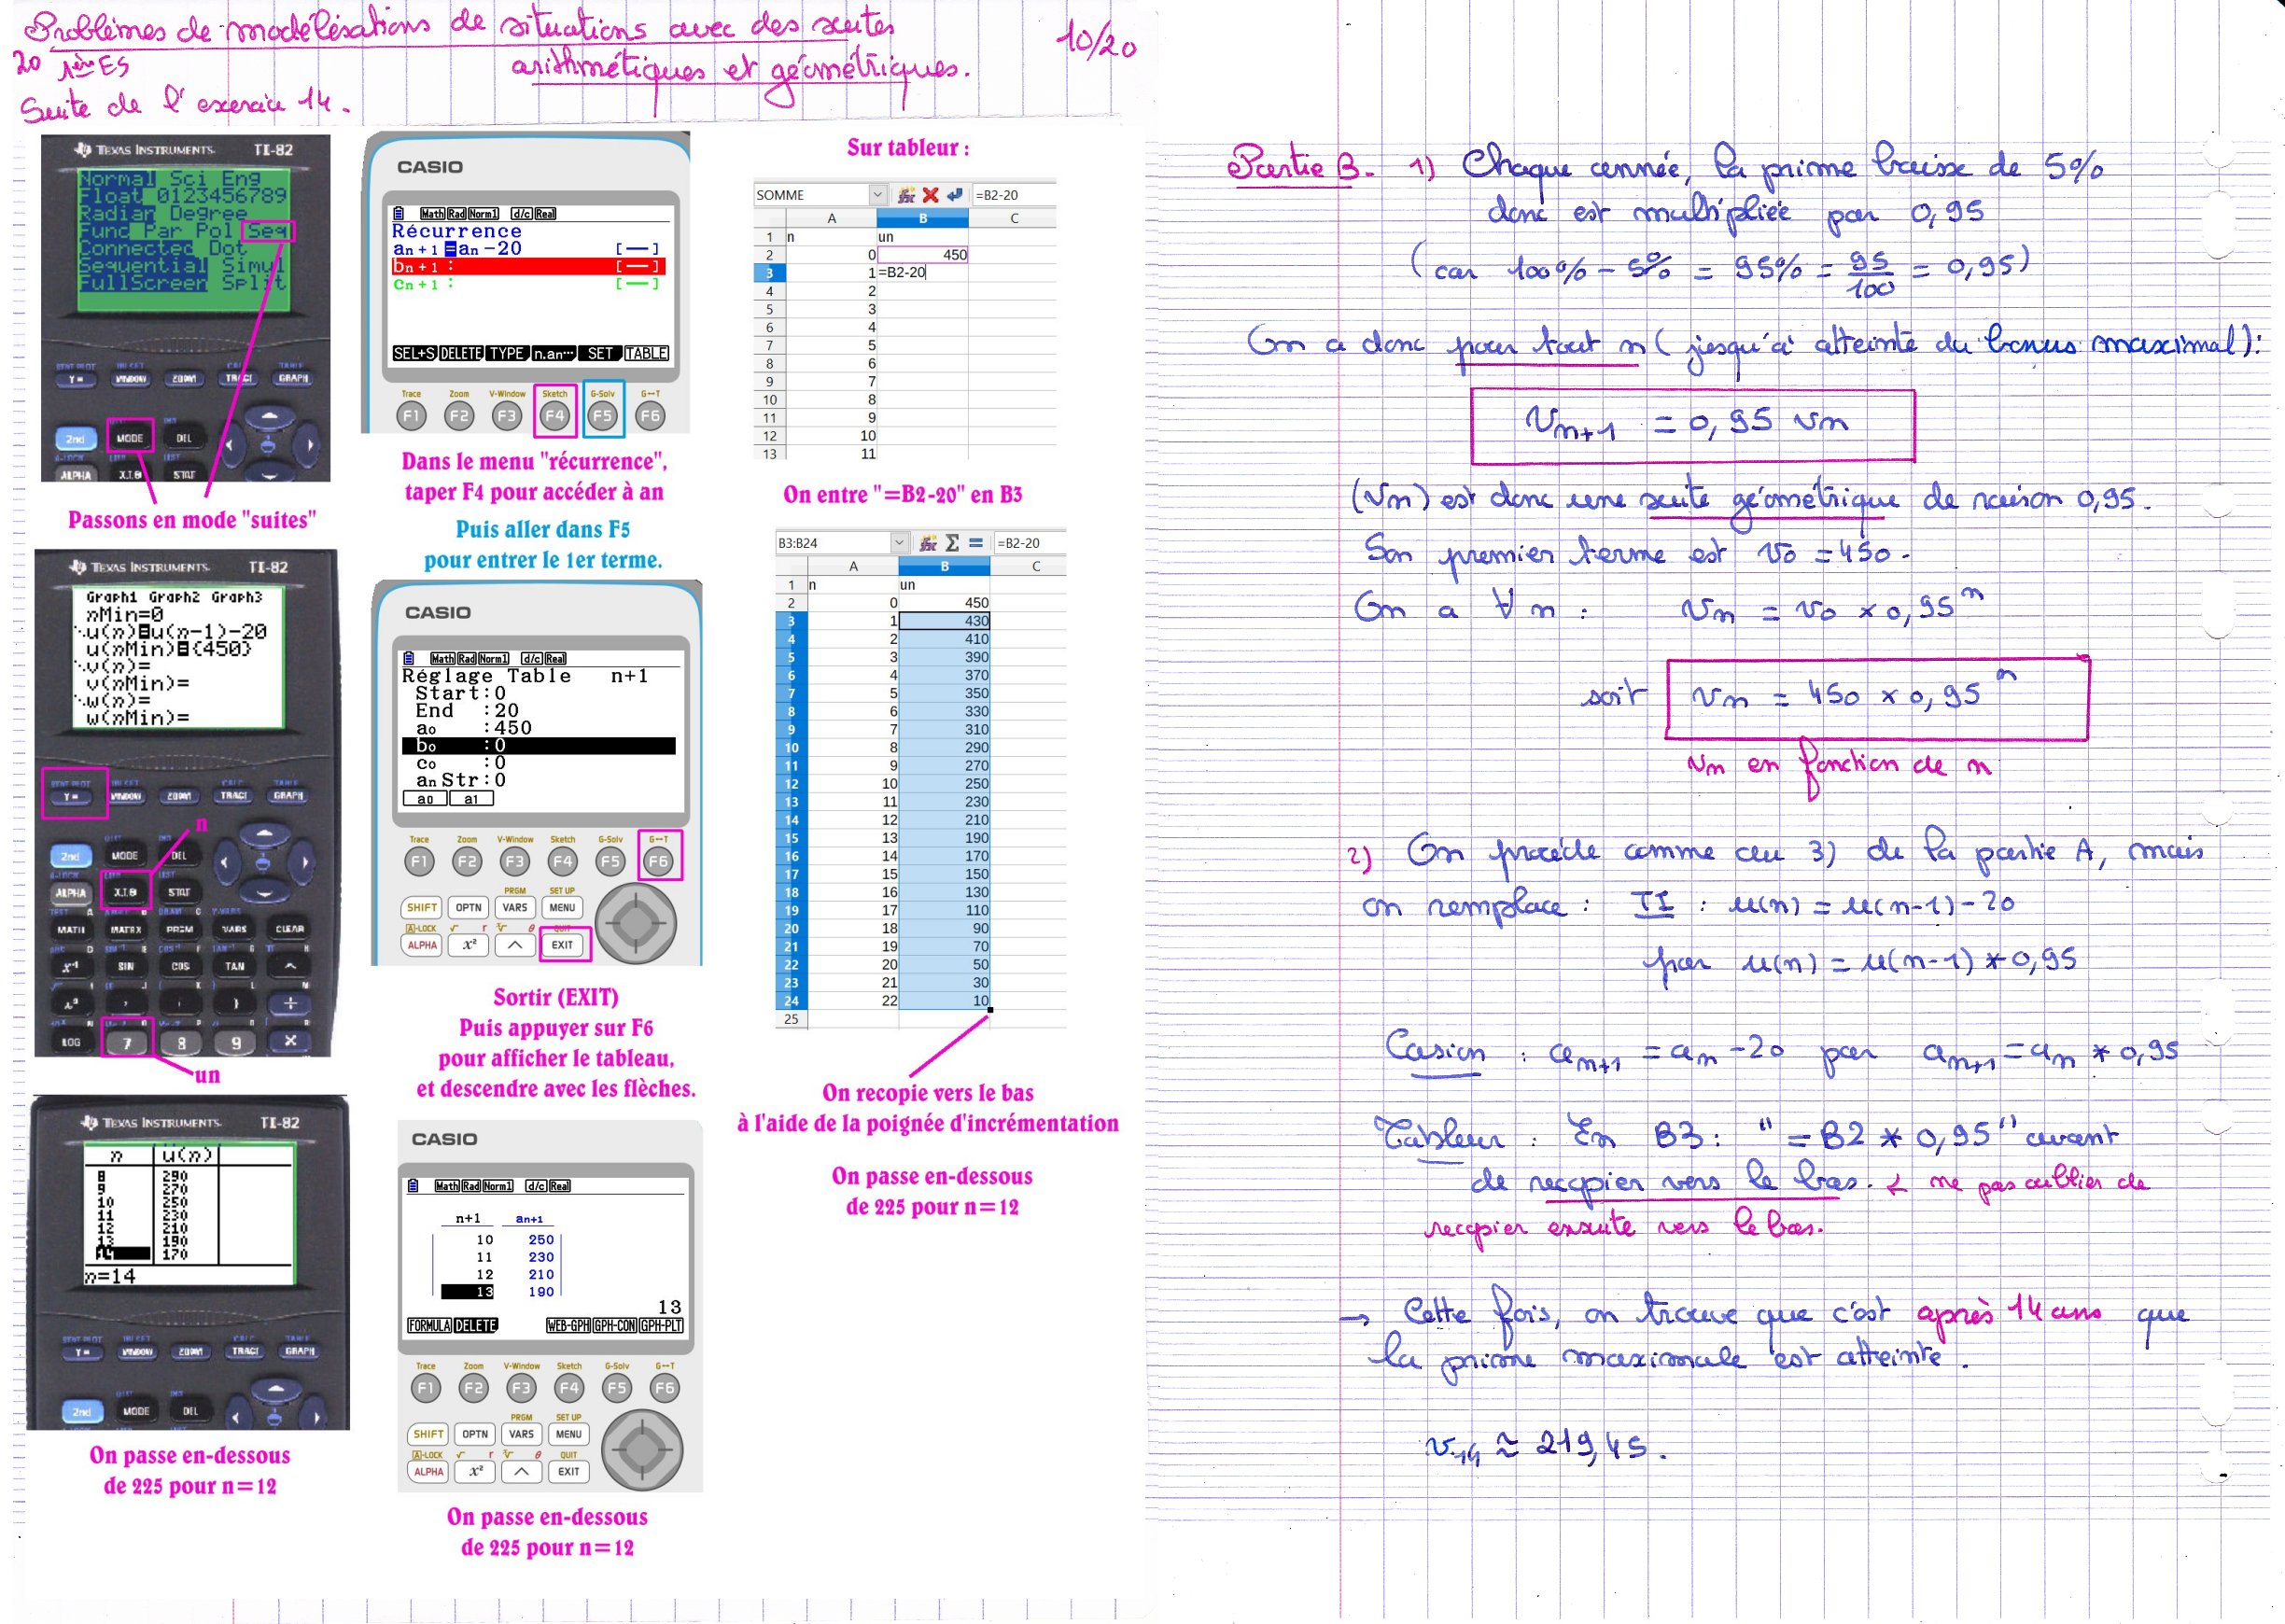 Problèmes de modélisations de situations avec des suites
arithmétiques et géométriques.
10/20
20 1ère ES
Suite de l'exercice 14.
TEXAS INSTRUMENTS TI-82
Normal Sci Eng
Float 0123456789
Radian Degree
Func Par Pol Seq
Connected Dot
Sequential Simul
FullScreen Split
Y= WINDOW ZOOM TRACE GRAPH
2nd MODE DEL
ALPHA X,T,θ STAT
Passons en mode "suites"
TEXAS INSTRUMENTS TI-82
Graph1 Graph2 Graph3
nMin=0
u(n)=u(n-1)-20
u(nMin)={450}
v(n)=
v(nMin)=
w(n)=
w(nMin)=
Y= WINDOW ZOOM TRACE GRAPH
n
2nd MODE DEL
ALPHA X,T,θ STAT
MATH MATRX PRGM VARS CLEAR
x-1 SIN COS TAN ^
x² , ( ) ÷
LOG 7 8 9 ×
un
TEXAS INSTRUMENTS TI-82
n u(n)
8 290
9 270
10 250
11 230
12 210
13 190
14 170
n=14
Y= WINDOW ZOOM TRACE GRAPH
2nd MODE DEL
On passe en-dessous
de 225 pour n=12
CASIO
Math Rad Norm1 d/c Real
Récurrence
an+1=an-20 [—]
bn+1: [—]
cn+1: [—]
SEL+S DELETE TYPE n.an… SET TABLE
Trace Zoom V-Window Sketch G-Solv G↔T
F1 F2 F3 F4 F5 F6
Dans le menu "récurrence",
taper F4 pour accéder à an
Puis aller dans F5
pour entrer le 1er terme.
CASIO
Math Rad Norm1 d/c Real
Réglage Table n+1
Start:0
End :20
a0 :450
b0 :0
c0 :0
anStr:0
a0 a1
Trace Zoom V-Window Sketch G-Solv G↔T
F1 F2 F3 F4 F5 F6
PRGM SET UP
SHIFT OPTN VARS MENU
A-LOCK √ r θ QUIT
ALPHA x² ^ EXIT
Sortir (EXIT)
Puis appuyer sur F6
pour afficher le tableau,
et descendre avec les flèches.
CASIO
Math Rad Norm1 d/c Real
n+1 an+1
10 250
11 230
12 210
13 190
13
FORMULA DELETE WEB-GPH GPH-CON GPH-PLT
Trace Zoom V-Window Sketch G-Solv G↔T
F1 F2 F3 F4 F5 F6
PRGM SET UP
SHIFT OPTN VARS MENU
A-LOCK √ r θ QUIT
ALPHA x² ^ EXIT
On passe en-dessous
de 225 pour n=12
Sur tableur :
SOMME =B2-20
A B C
1 n un
2 0 450
3 1 =B2-20
4 2
5 3
6 4
7 5
8 6
9 7
10 8
11 9
12 10
13 11
On entre "=B2-20" en B3
B3:B24 Σ = =B2-20
A B C
1 n un
2 0 450
3 1 430
4 2 410
5 3 390
6 4 370
7 5 350
8 6 330
9 7 310
10 8 290
11 9 270
12 10 250
13 11 230
14 12 210
15 13 190
16 14 170
17 15 150
18 16 130
19 17 110
20 18 90
21 19 70
22 20 50
23 21 30
24 22 10
25
On recopie vers le bas
à l'aide de la poignée d'incrémentation
On passe en-dessous
de 225 pour n=12
Partie B. 1) Chaque année, la prime baisse de 5%
donc est multipliée par 0,95
(car 100% - 5% = 95% = 95/100 = 0,95)
On a donc pour tout n (jusqu'à atteinte du bonus maximal):
Vn+1 = 0,95 Vn
(Vn) est donc une suite géométrique de raison 0,95.
Son premier terme est V0 = 450.
On a ∀ n : Vn = V0 × 0,95^n
soit Vn = 450 × 0,95^n
Vn en fonction de n
2) On procède comme au 3) de la partie A, mais
on remplace : TI : u(n) = u(n-1) - 20
par u(n) = u(n-1) * 0,95
Casion : an+1 = an - 20 par an+1 = an * 0,95
Tableur : En B3 : "= B2 * 0,95" avant
de recopier vers le bas. ← ne pas oublier de
recopier ensuite vers le bas.
→ Cette fois, on trouve que c'est après 14 ans que
la prime maximale est atteinte.
V14 ≈ 219,45.